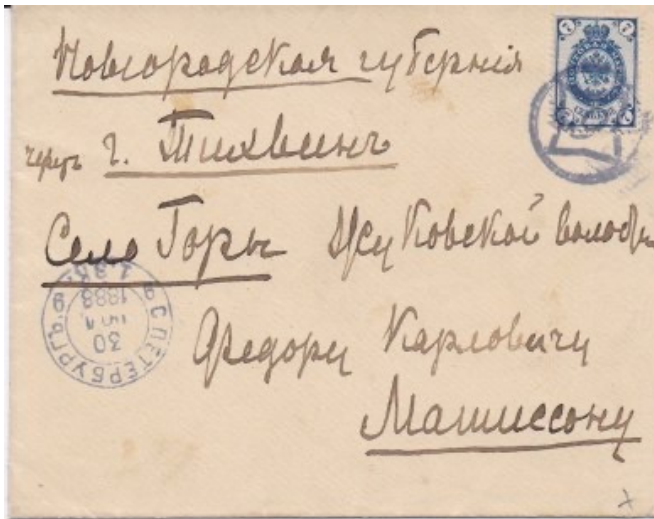 Новгородская губернія
черезъ г. Тихвинъ
Село Горы Жуковской волости
Федору Карловичу
Матиссону
7 7
7 7
С.ПЕТЕРБУРГЪ
30
1888